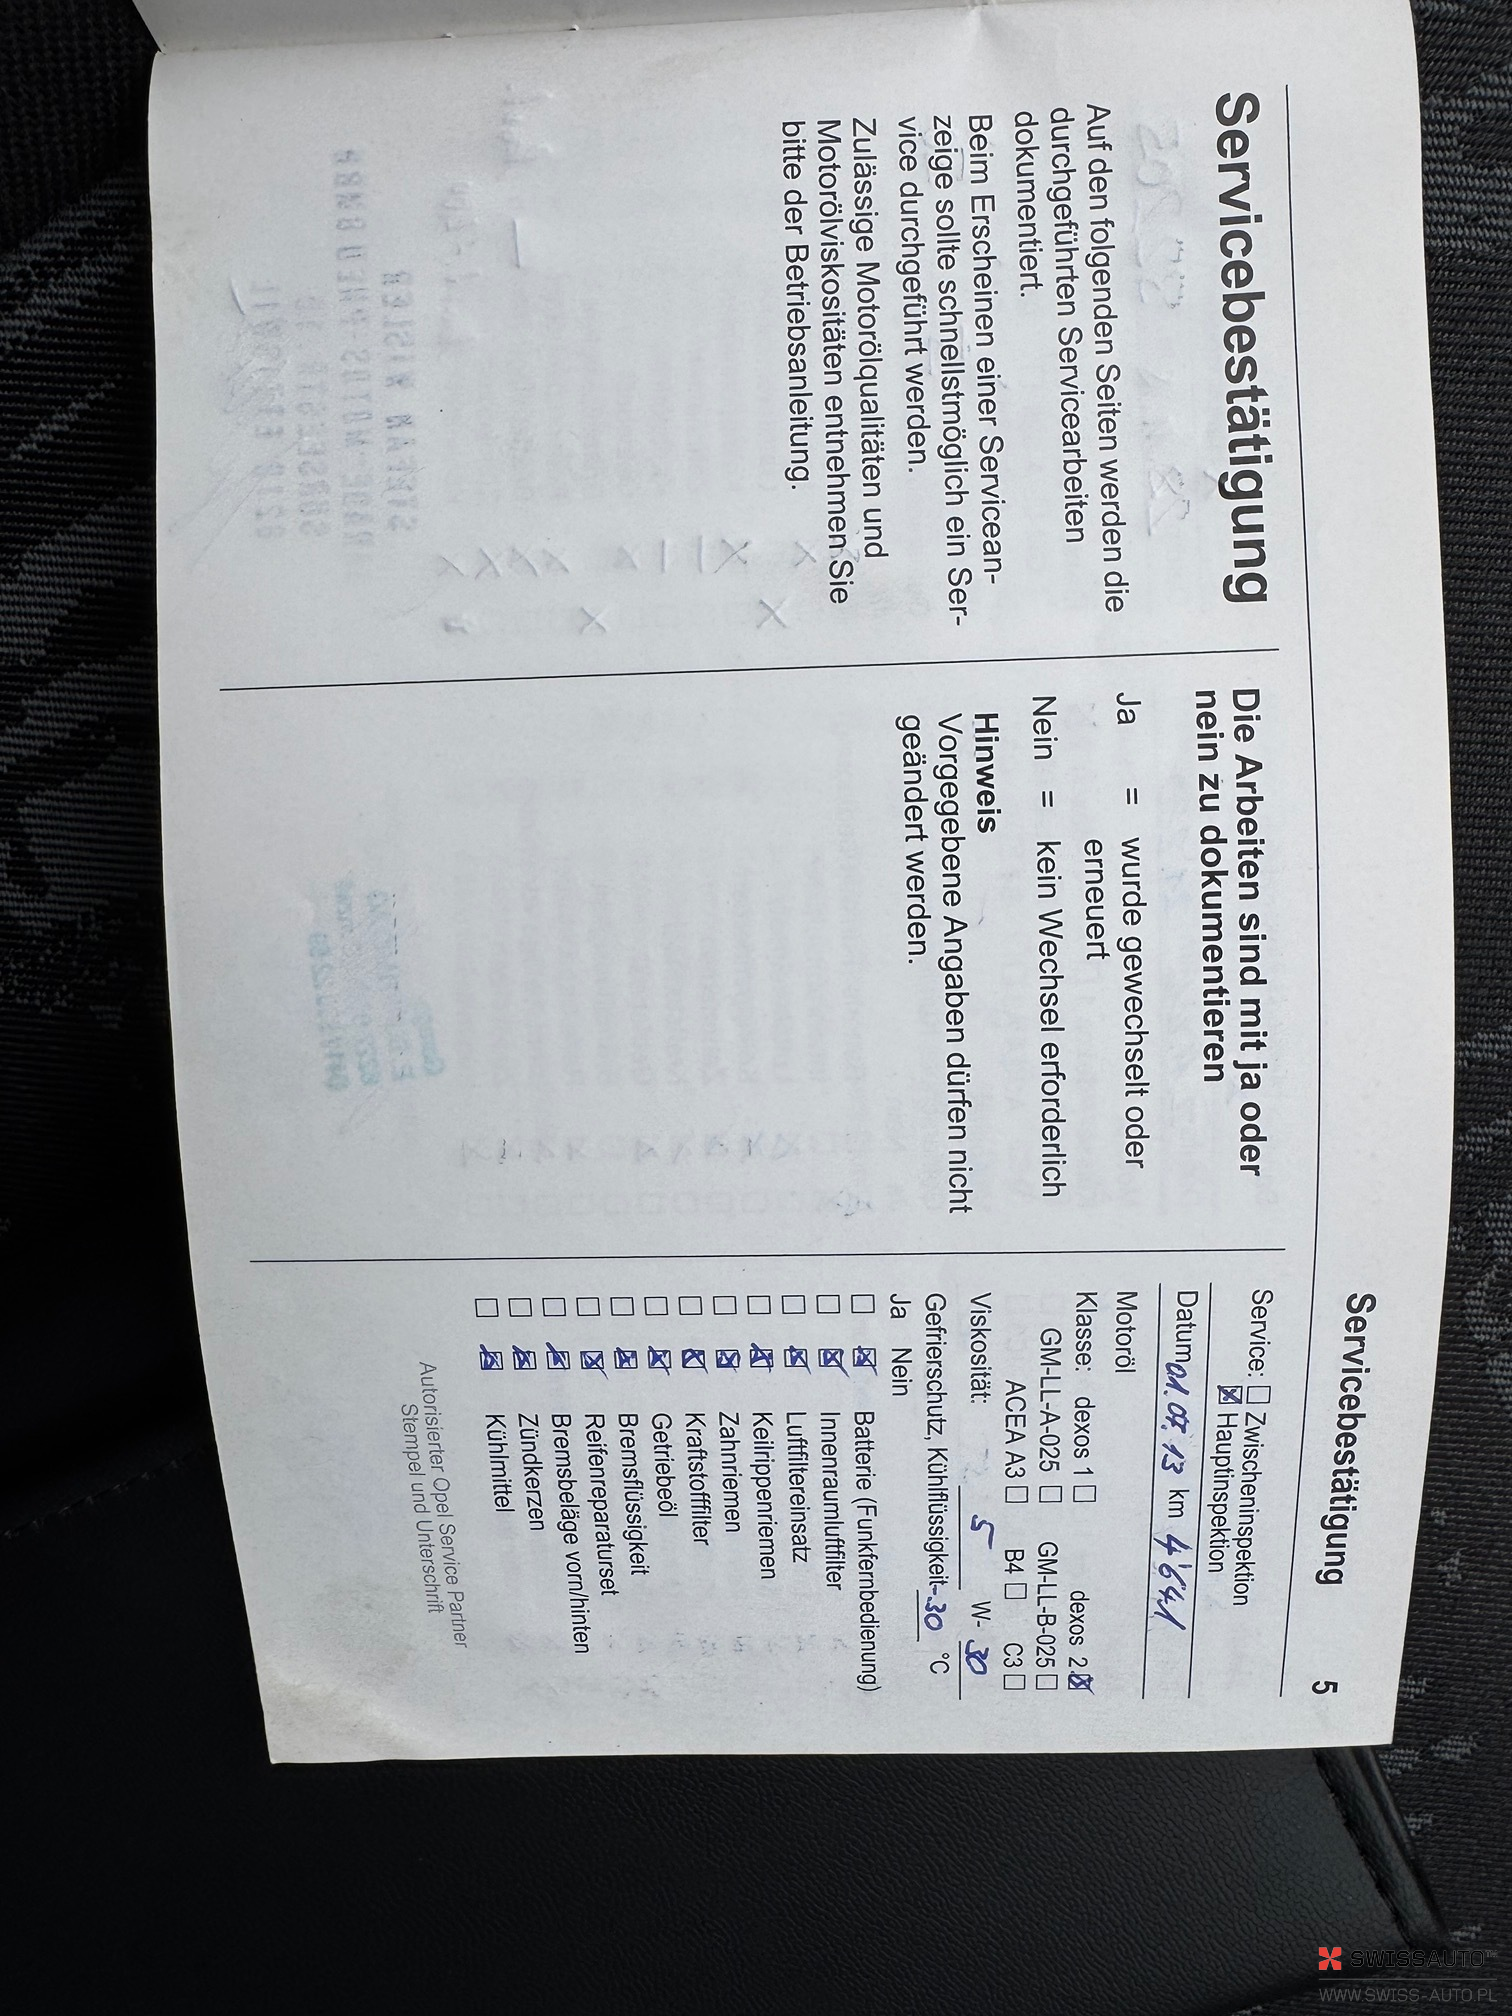 Servicebestätigung
5
Servicebestätigung
Auf den folgenden Seiten werden die
durchgeführten Servicearbeiten
dokumentiert.
Beim Erscheinen einer Servicean-
zeige sollte schnellstmöglich ein Ser-
vice durchgeführt werden.
Zulässige Motorölqualitäten und
Motorölviskositäten entnehmen Sie
bitte der Betriebsanleitung.
Die Arbeiten sind mit ja oder
nein zu dokumentieren
Ja = wurde gewechselt oder
erneuert
Nein = kein Wechsel erforderlich
Hinweis
Vorgegebene Angaben dürfen nicht
geändert werden.
Service: ☐ Zwischeninspektion
☒ Hauptinspektion
Datum 01.07.13 km 4'641
Motoröl
Klasse: dexos 1 ☐ dexos 2 ☒
GM-LL-A-025 ☐ GM-LL-B-025 ☐
ACEA A3 ☐ B4 ☐ C3 ☐
Viskosität: 5 W- 30
Gefrierschutz, Kühlflüssigkeit -30 °C
Ja Nein
☐ ☒ Batterie (Funkfernbedienung)
☐ ☒ Innenraumluftfilter
☐ ☒ Luftfiltereinsatz
☐ ☒ Keilrippenriemen
☐ ☒ Zahnriemen
☐ ☒ Kraftstofffilter
☐ ☒ Getriebeöl
☐ ☒ Bremsflüssigkeit
☐ ☒ Reifenreparaturset
☐ ☒ Bremsbeläge vorn/hinten
☐ ☒ Zündkerzen
☐ ☒ Kühlmittel
Autorisierter Opel Service Partner
Stempel und Unterschrift
SWISSAUTO
WWW.SWISS-AUTO.PL